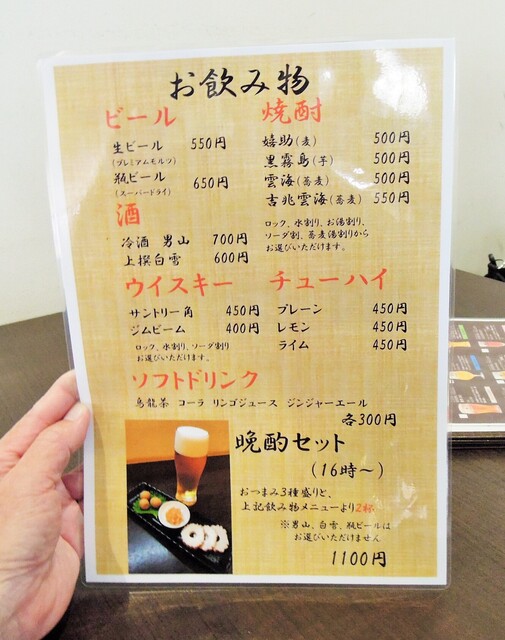 お飲み物
ビール
生ビール 550円
(プレミアムモルツ)
瓶ビール 650円
(スーパードライ)
酒
冷酒 男山 700円
上撰白雪 600円
焼酎
嬉助(麦) 500円
黒霧島(芋) 500円
雲海(蕎麦) 500円
吉兆雲海(蕎麦) 550円
ロック、水割り、お湯割り、
ソーダ割、蕎麦湯割りから
お選びいただけます。
ウイスキー
サントリー角 450円
ジムビーム 400円
ロック、水割り、ソーダ割り
お選びいただけます。
チューハイ
プレーン 450円
レモン 450円
ライム 450円
ソフトドリンク
烏龍茶 コーラ リンゴジュース ジンジャーエール
各300円
晩酌セット
(16時～)
おつまみ3種盛りと、
上記飲み物メニューより2杯
※男山、白雪、瓶ビールは
お選びいただけません
1100円